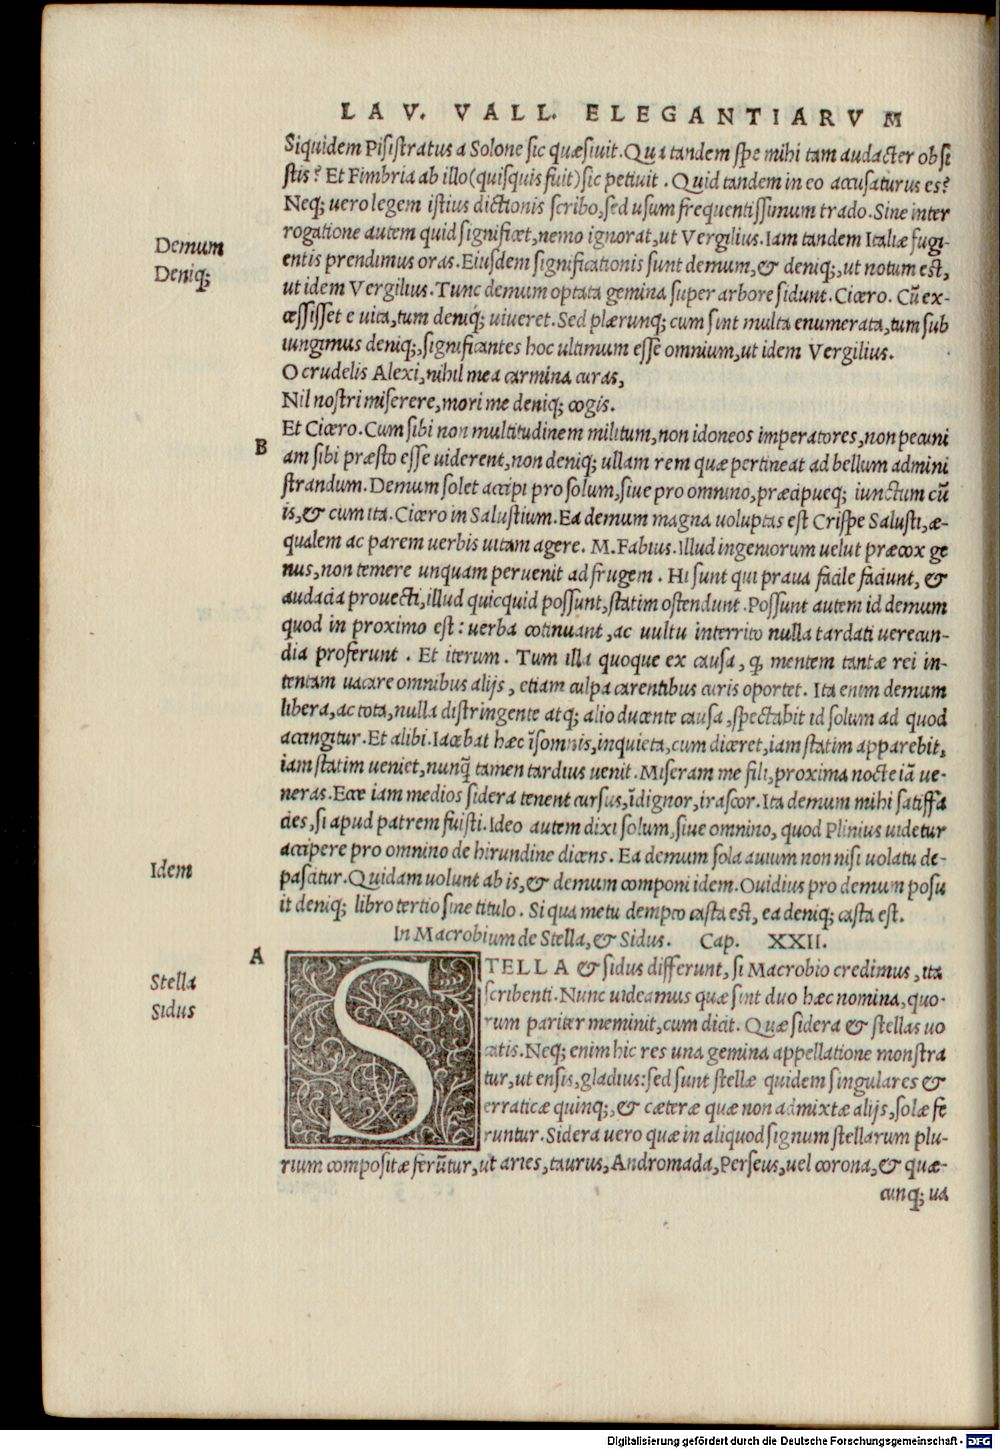 LAV. VALL. ELEGANTIARVM
Siquidem Pisistratus a Solone sic quæsiuit. Qua tandem spe mihi tam audacter obsi
stis? Et Fimbria ab illo (quisquis fuit) sic petiuit. Quid tandem in eo accusaturus es?
Neq; uero legem istius dictionis scribo, sed usum frequentissimum trado. Sine inter
rogatione autem quid significet, nemo ignorat, ut Vergilius. Iam tandem Italiæ fugi-
Demum
entis prendimus oras. Eiusdem significationis sunt demum, & deniq;, ut notum est,
Deniq;
ut idem Vergilius. Tunc demum optata gemina super arbore sidunt. Cicero. Cũ ex-
cessisset e uita, tum deniq; uiueret. Sed plærunq; cum sint multa enumerata, tum sub
iungimus deniq;, significantes hoc ultimum esse omnium, ut idem Vergilius.
O crudelis Alexi, nihil mea carmina curas,
Nil nostri miserere, mori me deniq; cogis.
Et Cicero. Cum sibi non multitudinem militum, non idoneos imperatores, non pecuni
B
am sibi præsto esse uiderent, non deniq; ullam rem quæ pertineat ad bellum admini
strandum. Demum solet accipi pro solum, siue pro omnino, præcipueq; iunctum cũ
is, & cum ita. Cicero in Salustium. Ea demum magna uoluptas est Crispe Salusti, æ-
qualem ac parem uerbis uitam agere. M. Fabius. Illud ingeniorum uelut præcox ge
nus, non temere unquam peruenit ad frugem. Hi sunt qui praua facile faciunt, &
audacia prouecti, illud quicquid possunt, statim ostendunt. Possunt autem id demum
quod in proximo est: uerba cõtinuant, ac uultu interrito nulla tardati uerecun-
dia proferunt. Et iterum. Tum illa quoque ex causa, q̃ mentem tantæ rei in-
tentam uacare omnibus alijs, etiam culpa carentibus curis oportet. Ita enim demum
libera, ac tota, nulla distringente atq; alio ducente causa, spectabit id solum ad quod
accingitur. Et alibi. Iacebat hæc ĩsomnis, inquieta, cum diceret, iam statim apparebit,
iam statim ueniet, nunq̃ tamen tardius uenit. Miseram me fili, proxima nocte iã ue-
neras. Ecce iam medios sidera tenent cursus, ĩdignor, irascor. Ita demum mihi satiffa
cies, si apud patrem fuisti. Ideo autem dixi solum, siue omnino, quod Plinius uidetur
accipere pro omnino de hirundine dicens. Ea demum sola auium non nisi uolatu de-
Idem
pascitur. Quidam uolunt ab is, & demum componi idem. Ouidius pro demum posu
it deniq; libro tertio sine titulo. Si qua metu dempto casta est, ea deniq; casta est.
In Macrobium de Stella, & Sidus. Cap. XXII.
A
STELLA & sidus differunt, si Macrobio credimus, ita
Stella
scribenti. Nunc uideamus quæ sint duo hæc nomina, quo-
Sidus
rum pariter meminit, cum dicit. Quæ sidera & stellas uo
catis. Neq; enim hic res una gemina appellatione monstra
tur, ut ensis, gladius: sed sunt stellæ quidem singulares &
erraticæ quinq;, & cæteræ quæ non admixtæ alijs, solæ fe
runtur. Sidera uero quæ in aliquod signum stellarum plu-
rium compositæ ferũtur, ut aries, taurus, Andromada, Perseus, uel corona, & quæ-
cunq; ua
Digitalisierung gefördert durch die Deutsche Forschungsgemeinschaft - DFG